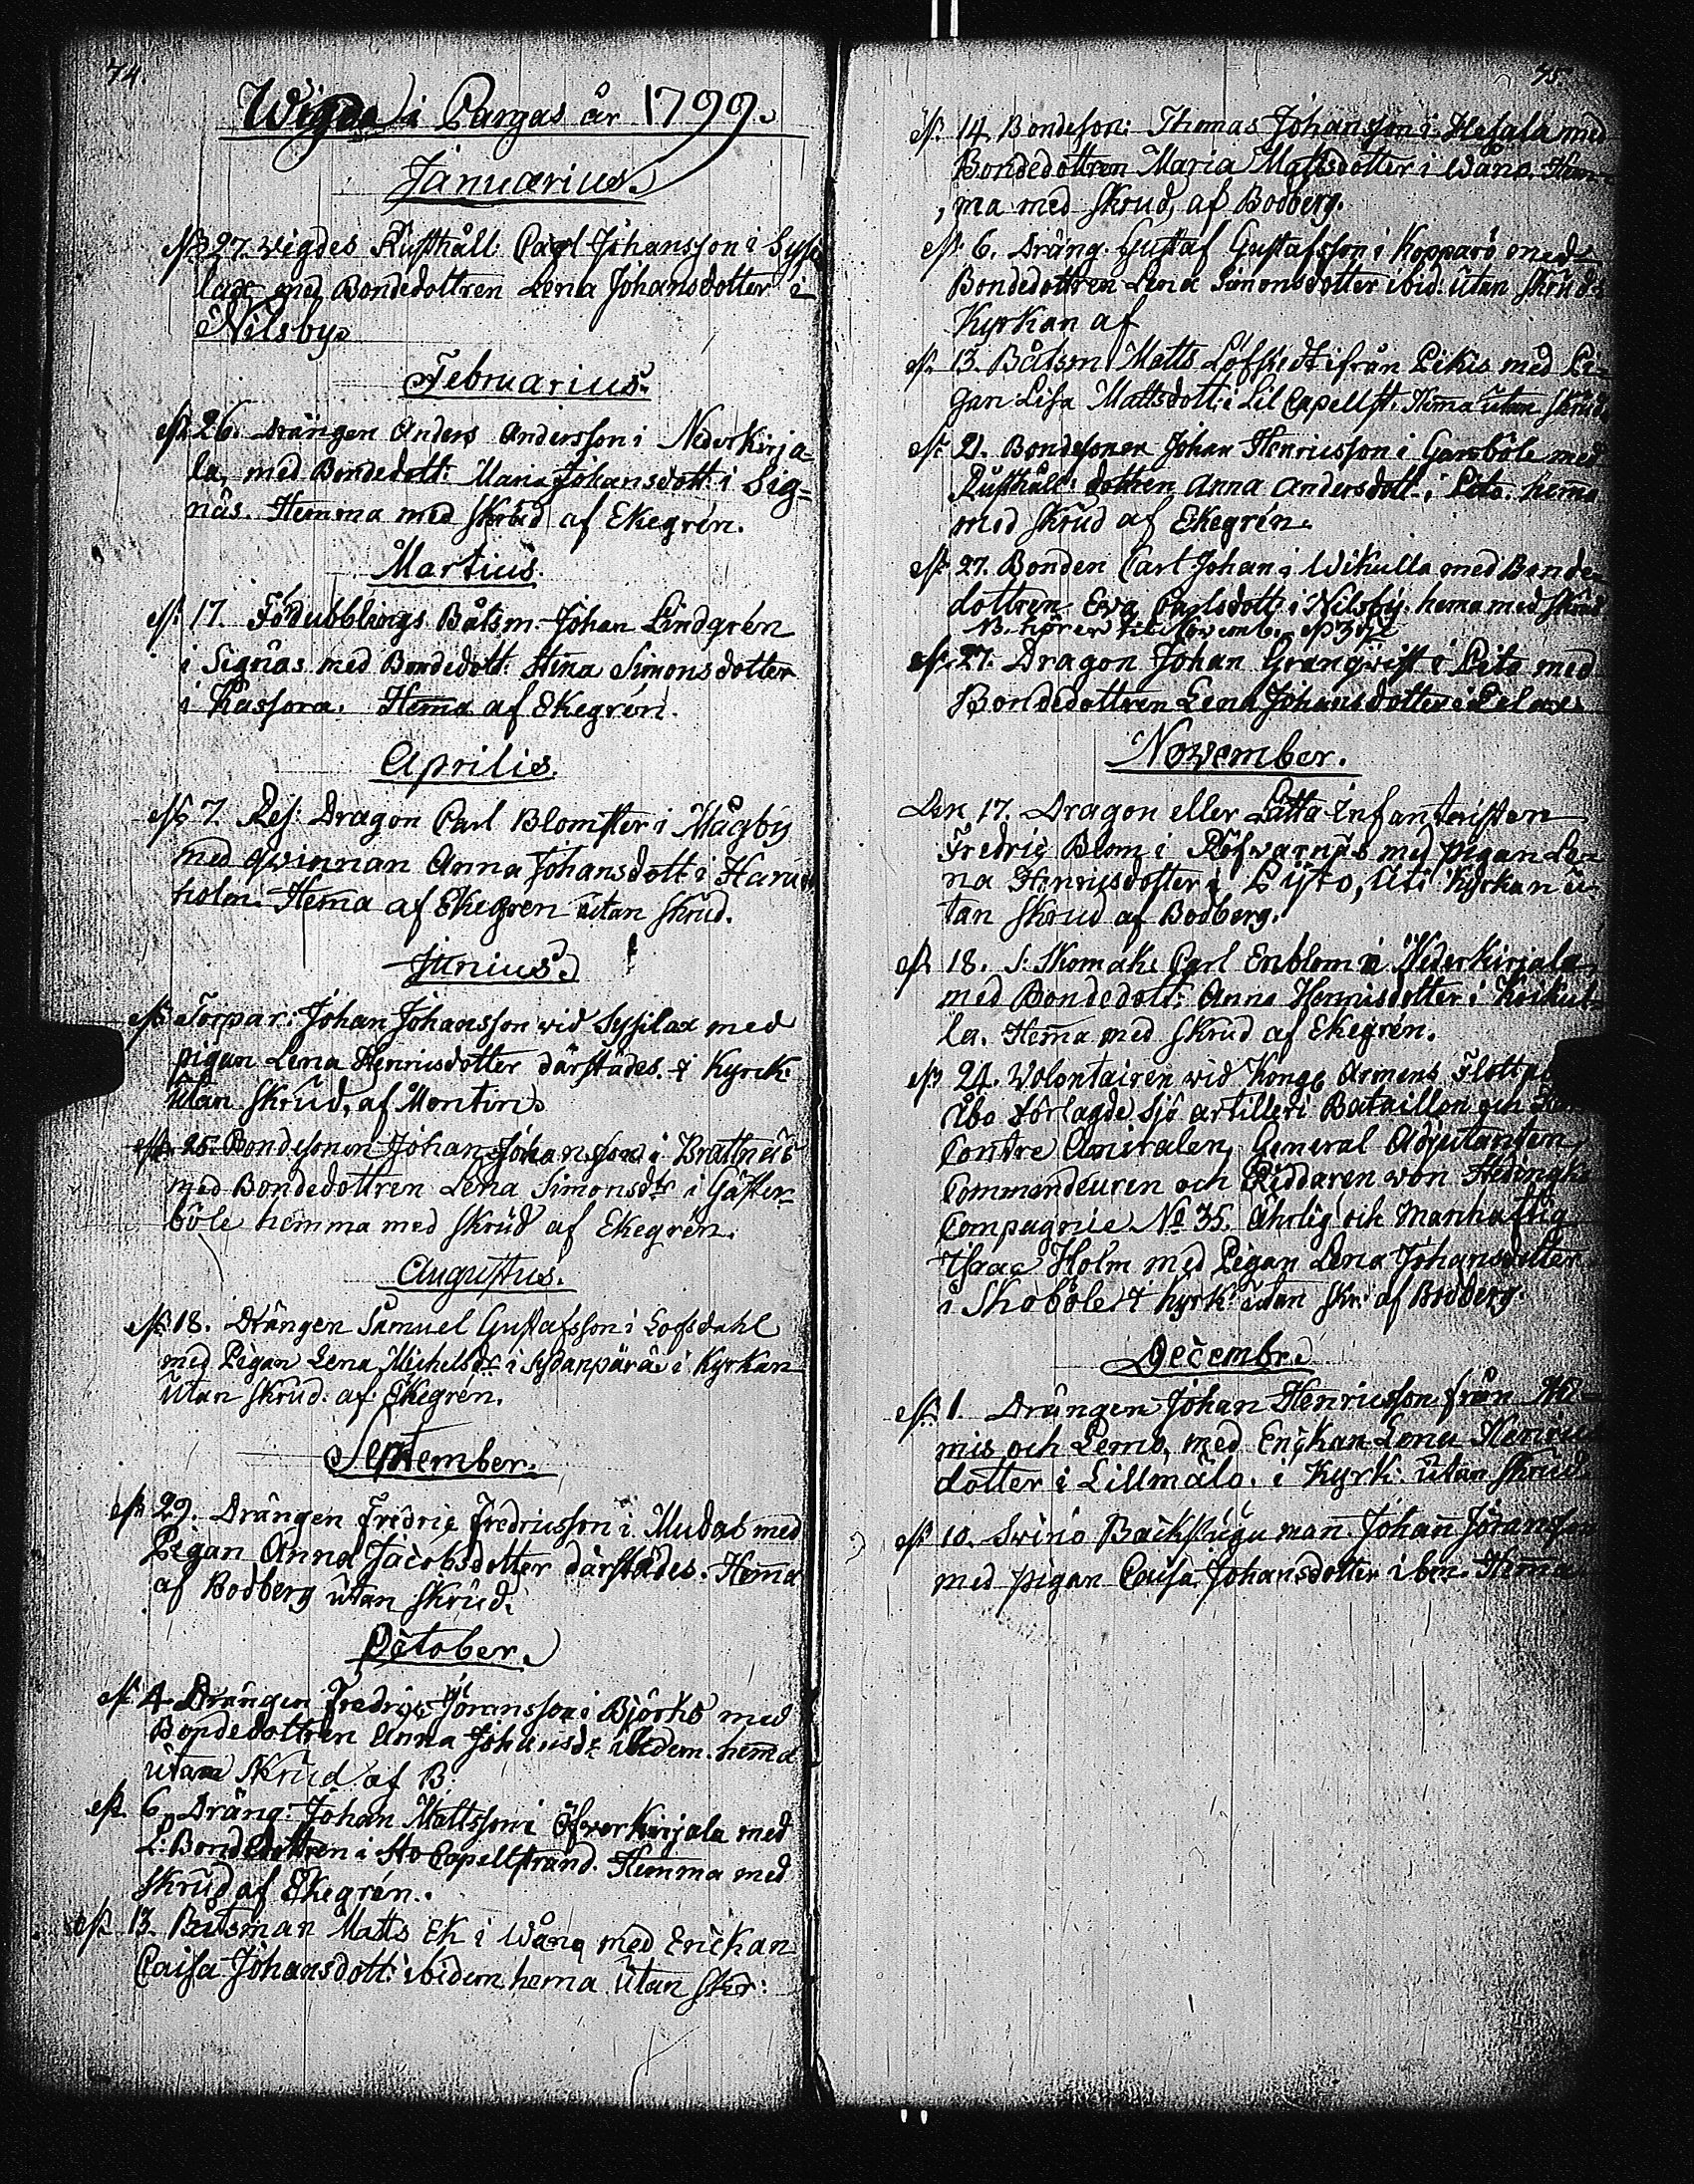 74.
Wigde i Pargas år 1799.
Januarius.
d. 27. wigdes Rusthåll: Carl Johansson i Sysi
lax med Bondedottren Lena Johansdotter i
Nilsby.
Februarius.
d. 26. Drängen Anders Andersson i Nederkirja=
la, med Bondedott: Maria Johansdott: i Sig=
näs. Hemma med Skrud af Ekegrén.
Martius.
d. 17. Fördubblings Båtsm. Johan Lindgrén
i Signäs med Bondedott: Stina Simonsdotter
i Kassora. Hem̅a af Ekegrén.
Aprilis.
d. 7. Res: Dragon Carl Blomster i Mågby
med qwinnan Anna Johansdott: i Haru
holm. Hem̅a af Ekegren utan skrud.
Junius.
Torpar: Johan Johansson vid Sysilax med
pigan Lena Henricsdotter därstädes. i Kyrk:
utan Skrud, af Montin.
d. 25. Bondesonen Johan Johansson i Brattnäs
med Bondedottren Lena Simonsdr i Gäster=
böle hemma med skrud af Ekegrén.
Augustus.
d. 18. Drängen Samuel Gustafsson i Lofsdahl
med Pigan Lena Michelsdr i Sydanpärä i Kyrkan
utan skrud. af Ekegrén.
September.
d. 29. Drängen Fridric Fredricsson i Mudas med
Pigan Anna Jacobsdotter därstädes. Hem̅a
af Bodberg utan skrud.
October.
d. 4. Drängen Fredric Jöransson i Björkö med
Bondedottren Anna Johansdr ibidem. hem̅a
utan Skrud af B.
d. 6. Dräng: Johan Mattsson i Öfverkirjala med
L: Bondedottren i Sto Capellstrand. Hemma med
skrud af Ekegrén.
d. 13. Båtsman Matts Ek i Wånå med Enckan
Caisa Johansdott: ibidem hema utan skr:
75.
d. 14. Bondeson: Thomas Johansson i Hesala med
Bondedottren Maria Mattsdotter i Wånå. Hem=
ma med Skrud, af Bodberg.
d. 6. Dräng. Gustaf Gustafsson i Kopparö med
Bondedottren Lena Simonsdotter ibid: utan Skrud.
Kyrkan af
d. 13. Båtsm: Matts Löfstedt ifrån Pikis med Pi=
gan Lisa Mattsdott: i Lil Capellst. Hem̅a utan skrud.
d. 21. Bondesonen Johan Henricsson i Garsböle med
Rusthåll: dottren Anna Andersdott: i Lito. hem̅a
med skrud af Ekegrén.
d. 27. Bonden Carl Johan: i Wikulla med Bonde=
dottren Eva Carlsdott: i Nilsby. hema med skrud
NB. hörer till Novemb.
d. 27. Dragon Johan Granqwist i Lito med
Bondedottren Lena Johansdotter i
November.
Den 17. Dragon eller Lätta Infanteristen
Fredric Blom i Röfvarnäs med pigan Le=
na Henricsdotter i Pyto, uti Kyrkan u=
tan Skrud af Bodberg.
d. 18. S: Skomak: Carl Enblom i Nederkirjala
med Bondedott: Anna Henricsdotter i Koikul=
la. Hem̅a med skrud af Ekegrén.
d. 24. Wolontairen wid Kongl Armens Flott på
Åbo förlagde Sjö artilleri Bataillon och
Contre Amiralen, General Adjutanten,
Commendeuren och Riddaren von
Compagnie No 35. Ährlig och Manhaftig
Isaac Holm med Pigan Lena Johansdotter
i Skoböle. i kyrk: utan skr: af Bodberg.
Decembr.
d. 1. Drängen Johan Henricsson från
mis och Lemo, med Enckan Lena Henrics
dotter i Lillmälo. i Kyrk: utan skrud.
d. 10. Svinö Backstugu man Johan̅ Jöransson
med pigan Caisa Johansdotter ibm. Hem̅a